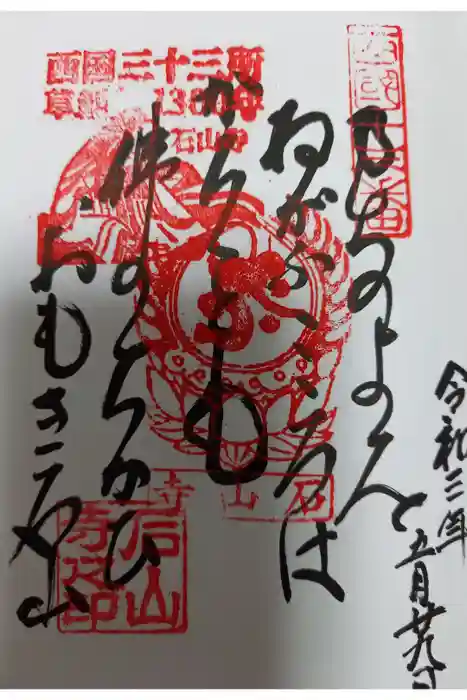 西国十三番
のちのよを
ねがふこころは
かろくとも
佛のちかひ
おもき石山
令和三年
五月廿九日
西国三十三所
草創1300年
石山寺
石山寺
石山寺之印